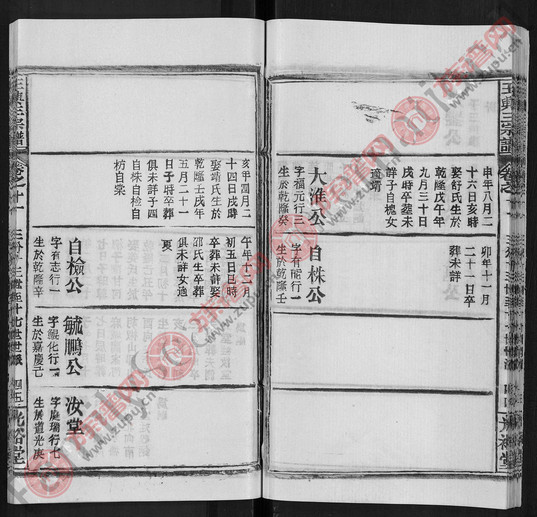 申年八月二
十六日亥時
娶舒氏生於
乾隆戊午年
九月三十日
戌時卒葬未
詳子自槐女
適靖
大淮公
字福元行三
生於乾隆癸
卯年十一月
二十一日卒
葬未詳
自株公
字有昭行一
生於乾隆壬
亥年閏月二
十四日戌時
娶靖氏生於
乾隆壬戌年
五月二十一
日子時卒葬
俱未詳子四
自株自檢自
枋自棠
午年十二月
初五日巳時
卒葬未詳娶
邵氏生卒葬
俱未詳女適
夏
自檢公
字有志行一
生於乾隆辛
毓鵬公
字鯤化行一
生於嘉慶己
汝堂
字庭瑞行七
生於道光庚
王與三宗譜
卷之十一
光裕堂
族譜网
www.zupu.cn